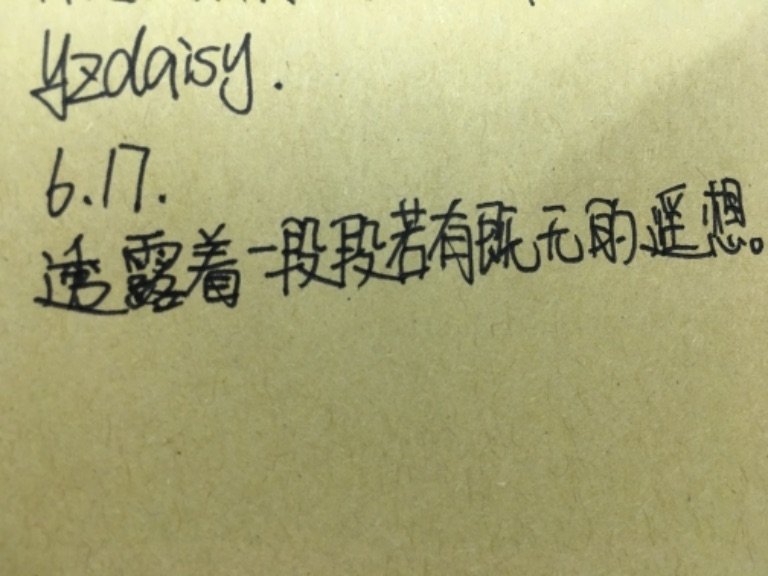 yzdaisy.
6.17.
透露着一段段若有既无的遥想。